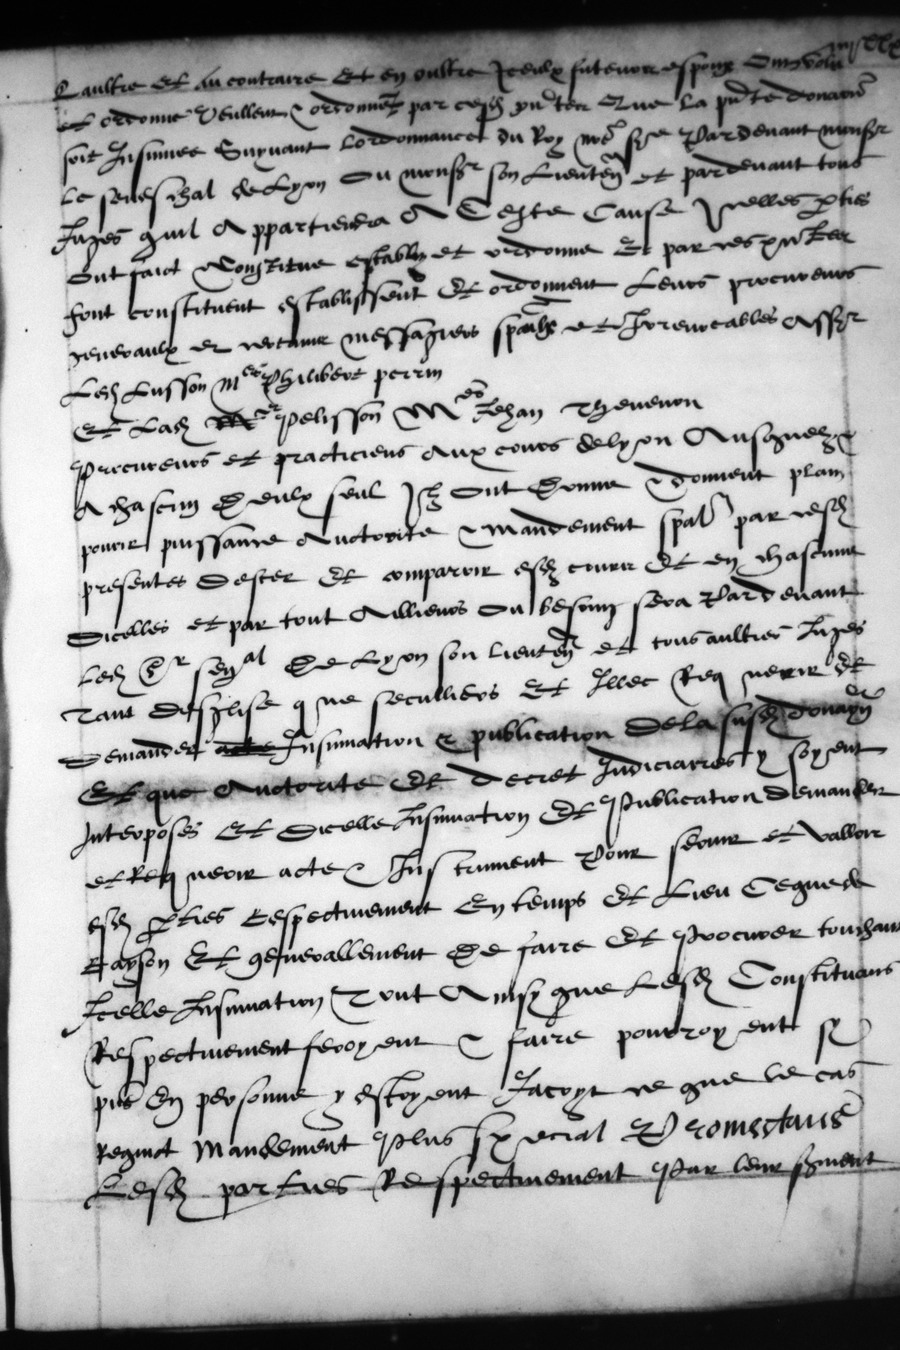 Laultre et au contraire Et en oultre Iceulx futeurs espoux Ont voulu
et ordonne veullent & ordonnet par cesd pntes Que la pnte donaon
soit Insinuee Suyvant lordonnance du Roy nre sre Pardevant monsr
le seneschal de Lyon Ou monsr son Lieuten et pardevant tous
Juges quil Appartiendra A Ceste Cause Icelles pties
Ont faict Constitue estably et ordonne Et par ces pntes
font constituent establissent Et ordonnent Leurs procureurs
generaulx et certains messagiers spaulx et Irrevocables Assr
Led Lusson Me Philibert perrin
Et Lad Pelisson Me Jehan Thevenon
Procureurs et practiciens Aux cours de lyon Ausquelz &
A chascun Deulx seul Ilz Ont Donne & donnent plain
povoir puissance Auctorite & Mandement spal par cesd
presentes Dester Et comparoir esd cours Et en chascune
Dicelles et par tout Ailleurs Ou besoing sera Pardevant
Led Sr senal De Lyon son lieuten et tous aultres Juges
Tant desglise que seculliers Et Illec Requerir Et
Demander Insinuation & publication De la susd donaon
Et que Auctorite Et Decret Judiciaires y soyent
Interposes Et Dicelle Insinuation Et Publication demander
et Requerir acte & Instrument Pour servir et valloir
esd pties Respectivement En temps Et Lieu Ce que de
Rayson Et generallement De faire Et Procurer touchant
Icelle Insinuation Tout Ainsy que Lesd Constituans
Respectivement feroyent & faire pourroyent sy
pns En personne y estoyent Jacoyt ce que le cas
Requist Mandement Plus special Promectans
Lesd parties Respectivement Par leur serment